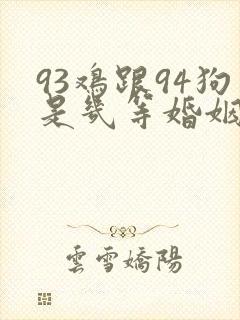 93鸡跟94狗
是几等婚姻
雲雪嬌陽